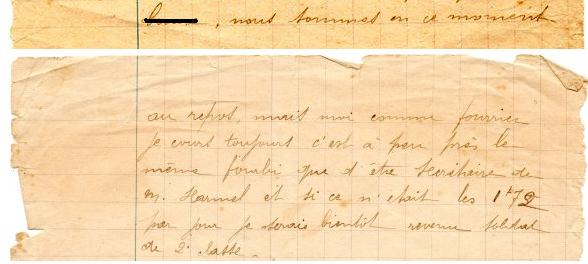 , nous sommes en ce moment
au repos, mais moi comme fourrier
je cours toujours c'est à peu près le
même fourbi que d'être secrétaire de
M. Harmel et si ce n'était les 1f72
par jour je serais bientôt revenu soldat
de 2e lasse.